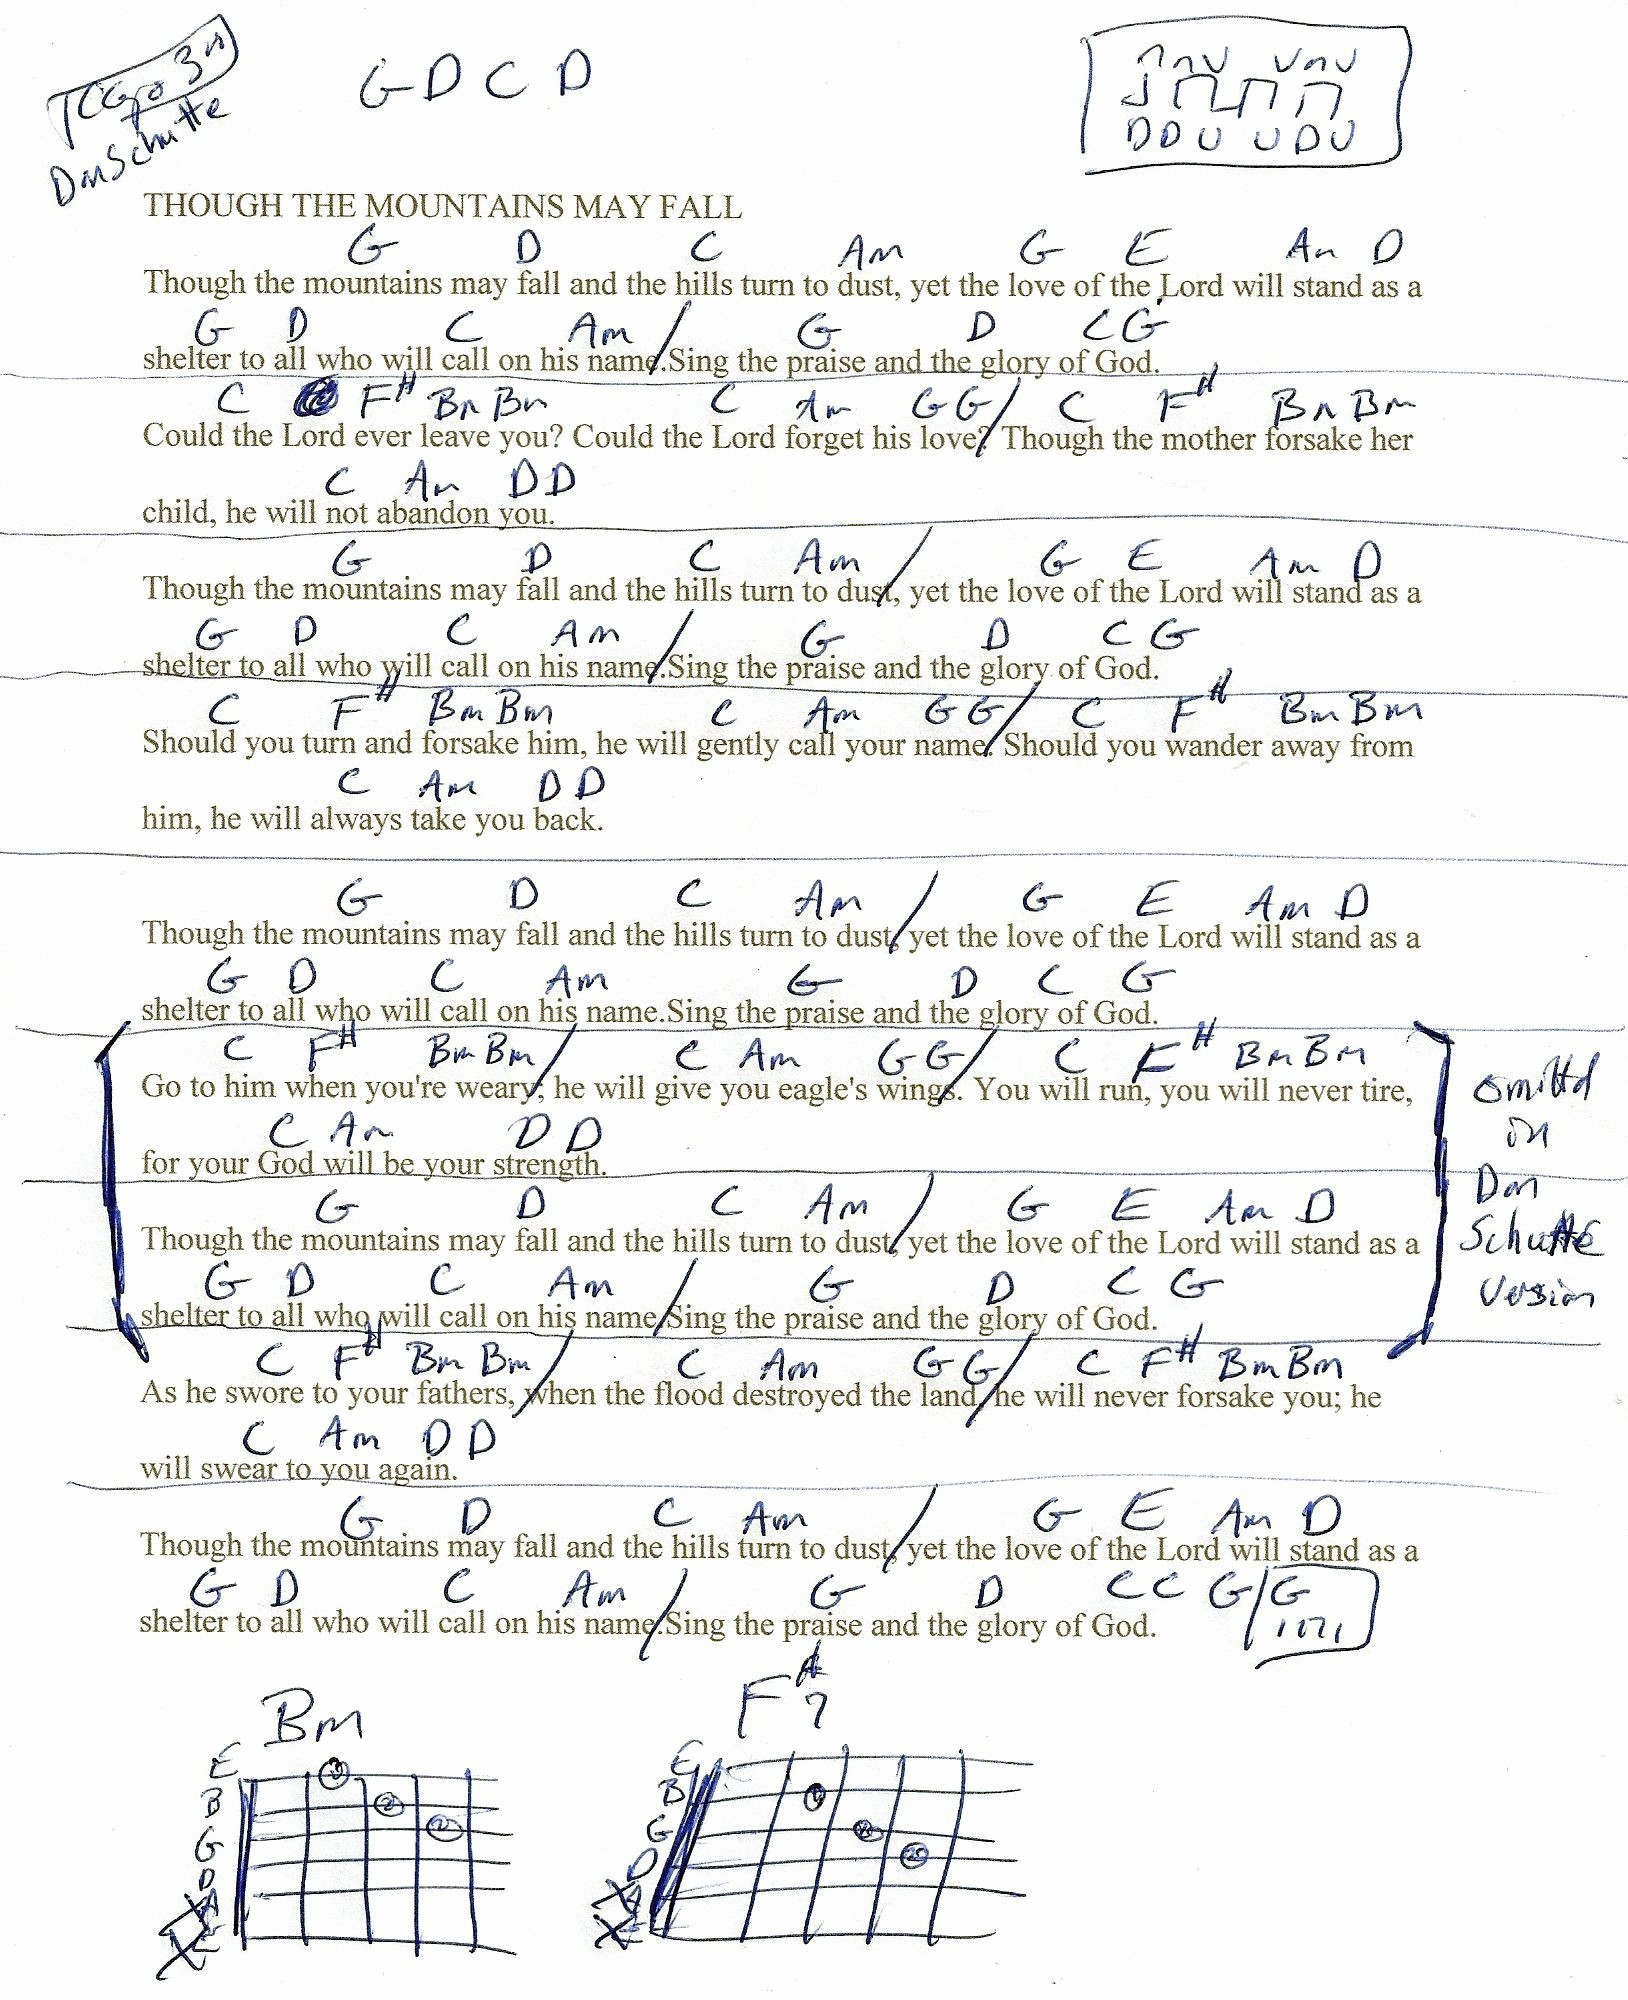 G D C D
Don Schutte
D D U U D U
THOUGH THE MOUNTAINS MAY FALL
G D C Am G E Am D
Though the mountains may fall and the hills turn to dust, yet the love of the Lord will stand as a
G D C Am / G D C G
shelter to all who will call on his name.Sing the praise and the glory of God.
C F# Bm Bm C Am G G / C F# Bm Bm
Could the Lord ever leave you? Could the Lord forget his love? Though the mother forsake her
C Am D D
child, he will not abandon you.
G D C Am / G E Am D
Though the mountains may fall and the hills turn to dust, yet the love of the Lord will stand as a
G D C Am / G D C G
shelter to all who will call on his name.Sing the praise and the glory of God.
C F# Bm Bm C Am G G / C F# Bm Bm
Should you turn and forsake him, he will gently call your name. Should you wander away from
C Am D D
him, he will always take you back.
G D C Am / G E Am D
Though the mountains may fall and the hills turn to dust, yet the love of the Lord will stand as a
G D C Am G D C G
shelter to all who will call on his name.Sing the praise and the glory of God.
C F# Bm Bm / C Am G G / C F# Bm Bm
Go to him when you're weary; he will give you eagle's wings. You will run, you will never tire,
C Am D D
for your God will be your strength.
G D C Am / G E Am D
Though the mountains may fall and the hills turn to dust, yet the love of the Lord will stand as a
G D C Am / G D C G
shelter to all who will call on his name.Sing the praise and the glory of God.
omittd
on
Dan
Schutte
version
C F# Bm Bm / C Am G G / C F# Bm Bm
As he swore to your fathers, when the flood destroyed the land, he will never forsake you; he
C Am D D
will swear to you again.
G D C Am / G E Am D
Though the mountains may fall and the hills turn to dust, yet the love of the Lord will stand as a
G D C Am / G D C C G / G
shelter to all who will call on his name.Sing the praise and the glory of God.
Bm
E
B
G
D
A
E
3
2
F#7
E
B
G
D
A
E